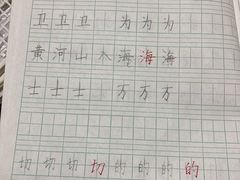 卫卫卫 为为为
黄河山入海海海
士士士 万万万
切切切切的的的的